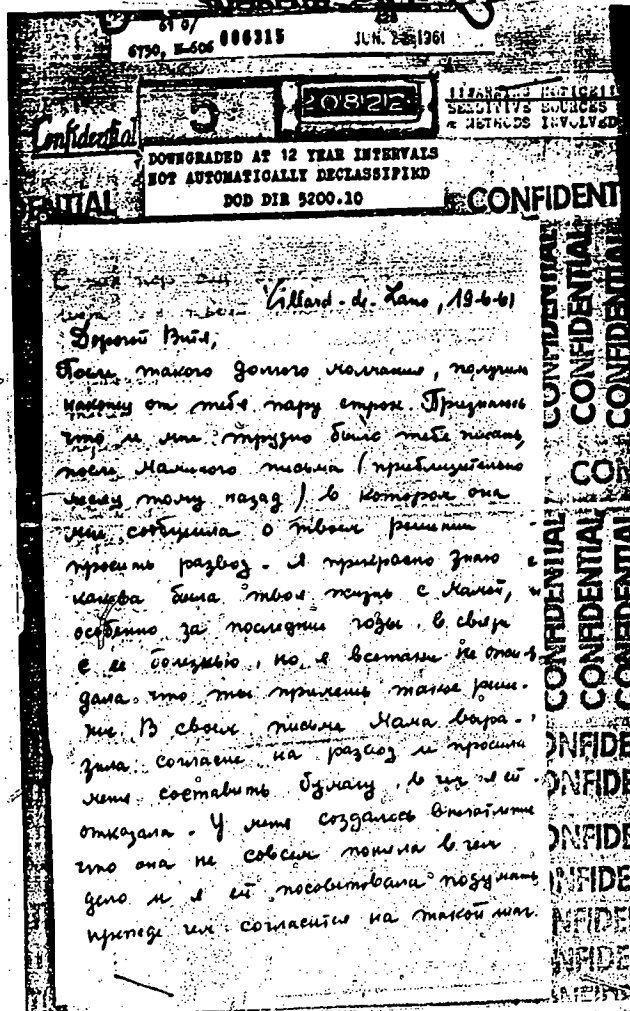 6750, E-606 006315
JUN. 1961
Confidential
20822
SENSITIVE SOURCES
& METHODS INVOLVED
DOWNGRADED AT 12 YEAR INTERVALS
NOT AUTOMATICALLY DECLASSIFIED
DOD DIR 5200.10
ENTIAL
CONFIDENT
CONFIDENTIAL
CONFIDENTIAL
Villard-de-Lans, 19-6-61
Дорогой Витя,
После такого долгого молчания, получим
наконец от тебя пару строк. Признаюсь
что и мне трудно было тебе писать,
после Маминого письма (приблизительно
месяц тому назад) в котором она
мне сообщила о твоем решении
просить развод. Я прекрасно знаю
какова была твоя жизнь с Мамой,
особенно за последние годы в связи
с ее болезнью, но я всетаки не ожи-
дала что ты примешь такое реше-
ние. В своем письме Мама выра-
зила согласие на развод и просила
меня составить бумагу, в чем я ей
отказала. У меня создалось впечатление
что она не совсем поняла в чем
дело и я ей посоветовала подумать
прежде чем согласится на такой шаг.